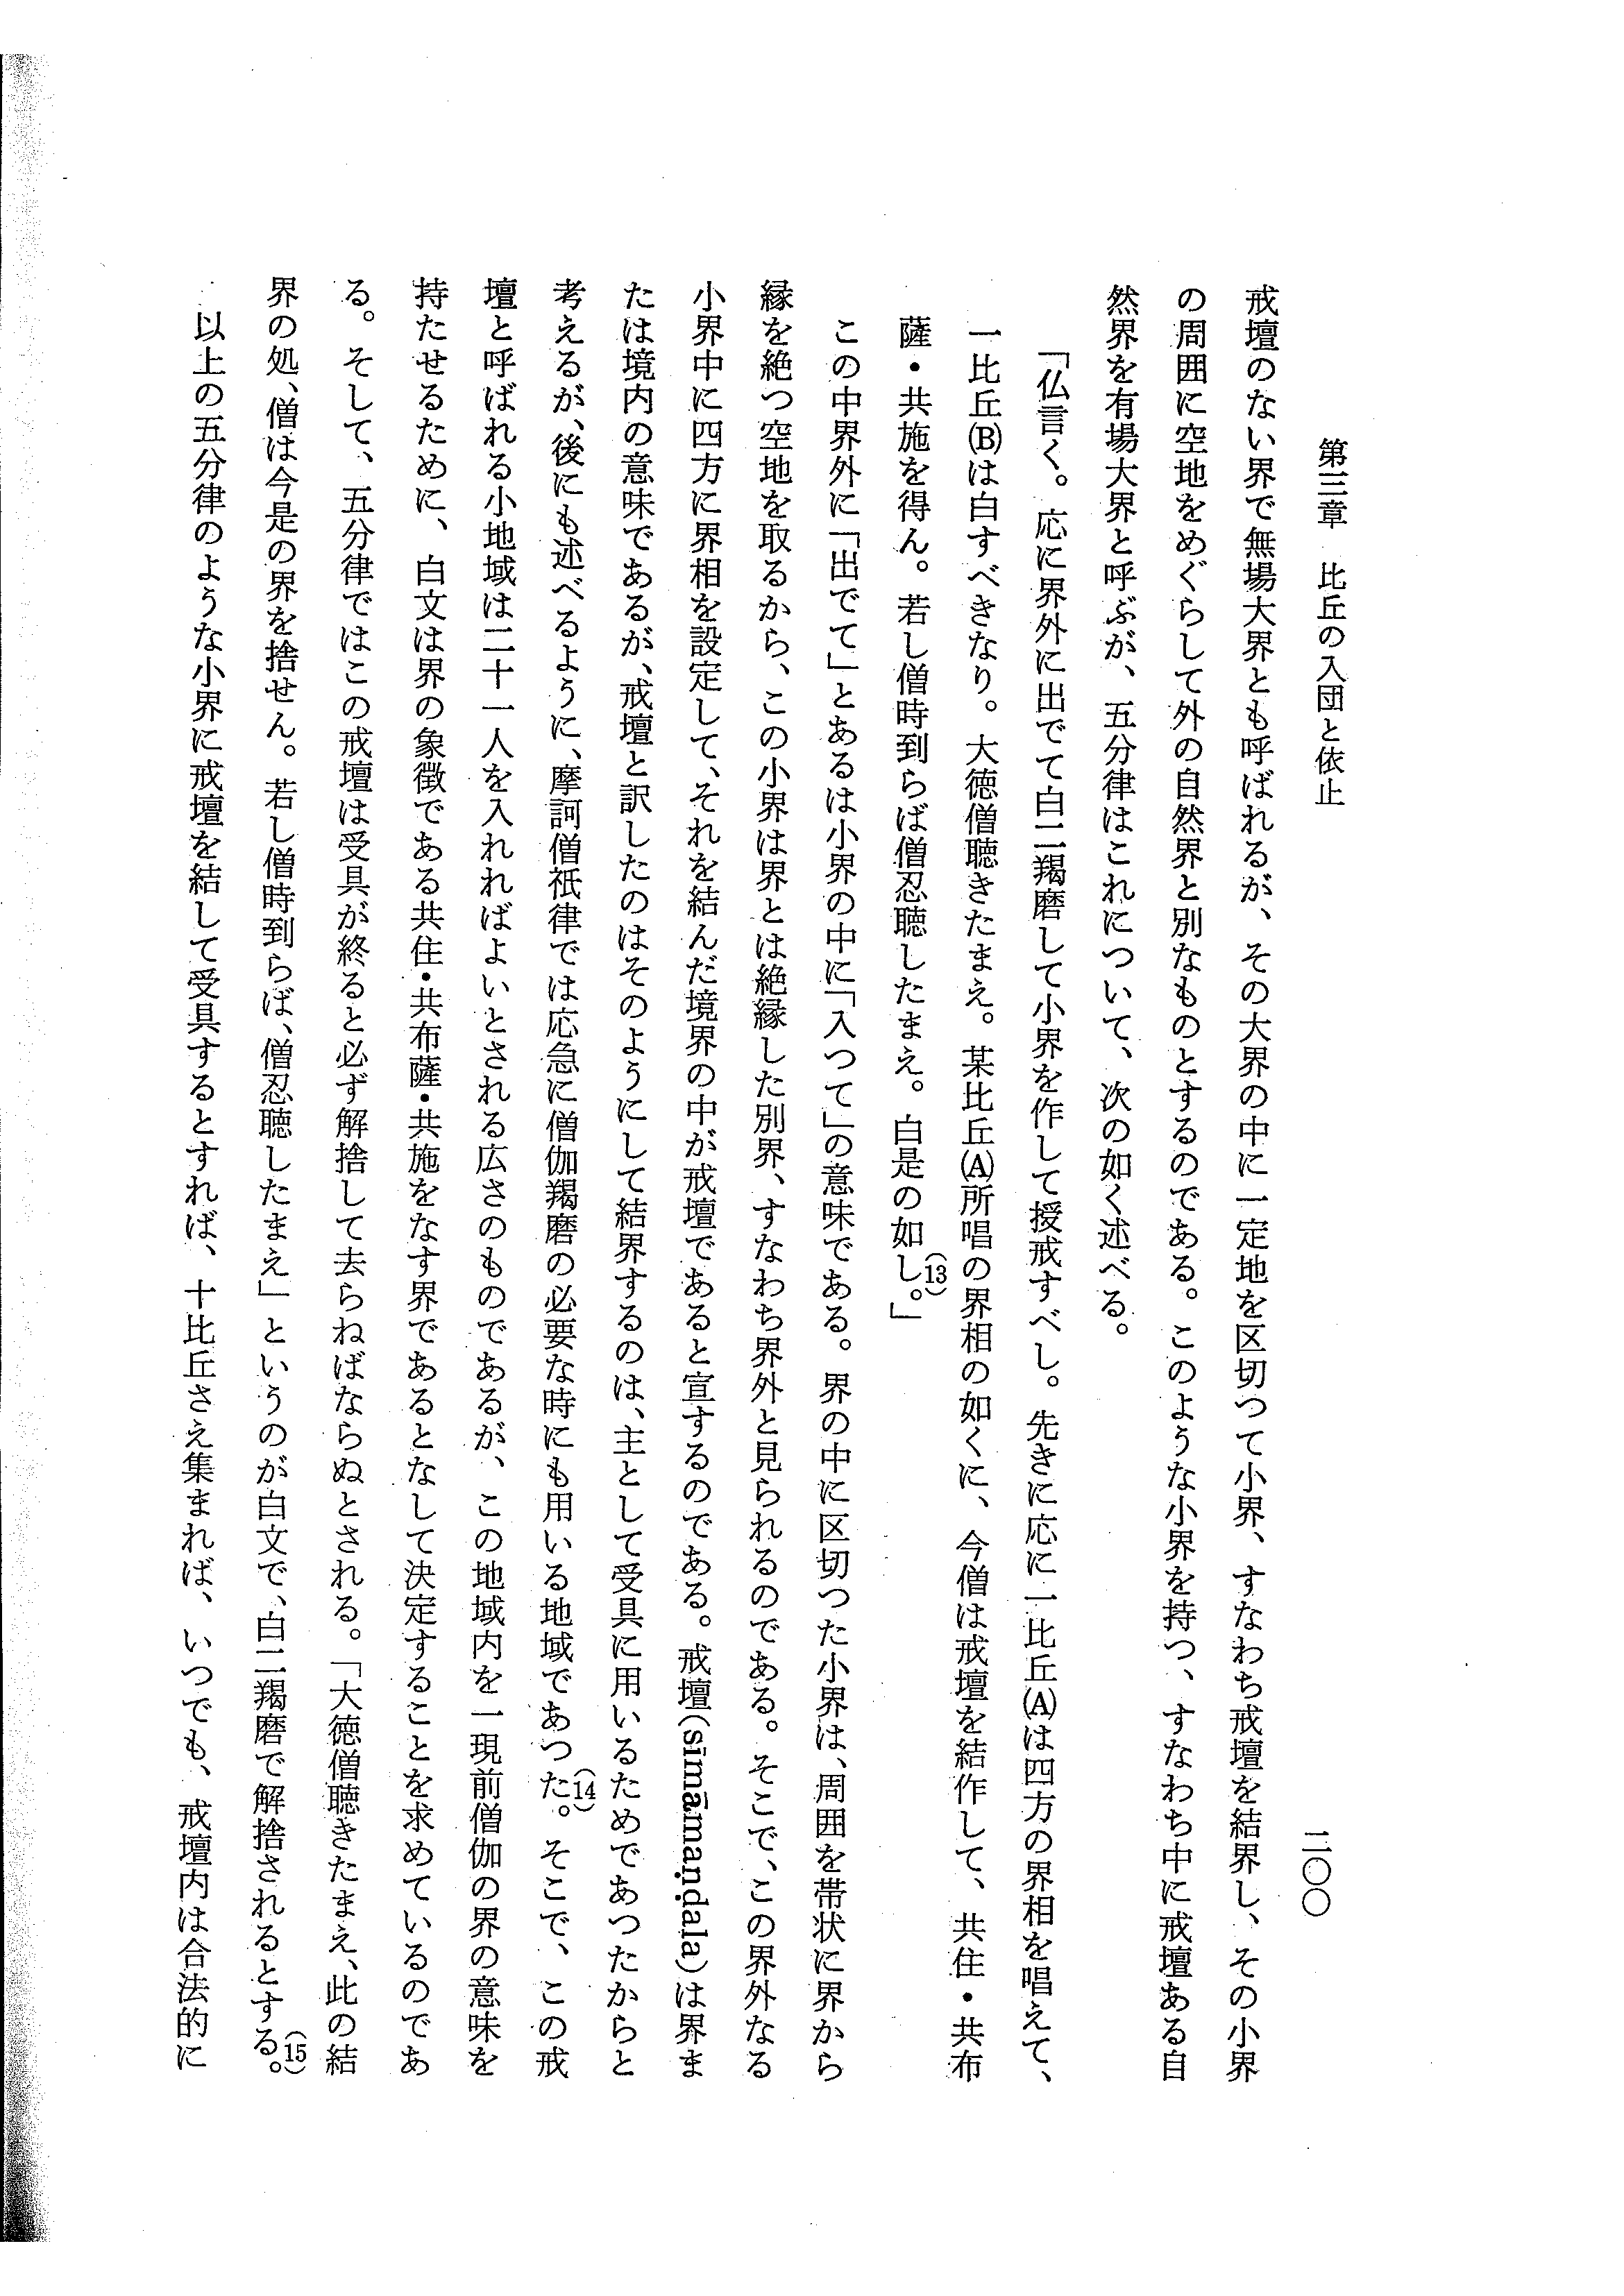 第三章　比丘の入団と依止
二〇〇
戒壇のない界で無場大界とも呼ばれるが、その大界の中に一定地を区切つて小界、すなわち戒壇を結界し、その小界
の周囲に空地をめぐらして外の自然界と別なものとするのである。このような小界を持つ、すなわち中に戒壇ある自
然界を有場大界と呼ぶが、五分律はこれについて、次の如く述べる。
「仏言く。応に界外に出でて白二羯磨して小界を作して授戒すべし。先きに応に一比丘(A)は四方の界相を唱えて、
一比丘(B)は白すべきなり。大徳僧聴きたまえ。某比丘(A)所唱の界相の如くに、今僧は戒壇を結作して、共住・共布
薩・共施を得ん。若し僧時到らば僧忍聴したまえ。白是の如し。」(13)
この中界外に「出でて」とあるは小界の中に「入つて」の意味である。界の中に区切つた小界は、周囲を帯状に界から
縁を絶つ空地を取るから、この小界は界とは絶縁した別界、すなわち界外と見られるのである。そこで、この界外なる
小界中に四方に界相を設定して、それを結んだ境界の中が戒壇であると宣するのである。戒壇(sīmāmaṇḍala)は界ま
たは境内の意味であるが、戒壇と訳したのはそのようにして結界するのは、主として受具に用いるためであつたからと
考えるが、後にも述べるように、摩訶僧祇律では応急に僧伽羯磨の必要な時にも用いる地域であつた。(14)そこで、この戒
壇と呼ばれる小地域は二十一人を入れればよいとされる広さのものであるが、この地域内を一現前僧伽の界の意味を
持たせるために、白文は界の象徴である共住・共布薩・共施をなす界であるとなして決定することを求めているのであ
る。そして、五分律ではこの戒壇は受具が終ると必ず解捨して去らねばならぬとされる。「大徳僧聴きたまえ、此の結
界の処、僧は今是の界を捨せん。若し僧時到らば、僧忍聴したまえ」というのが白文で、白二羯磨で解捨されるとする。(15)
以上の五分律のような小界に戒壇を結して受具するとすれば、十比丘さえ集まれば、いつでも、戒壇内は合法的に